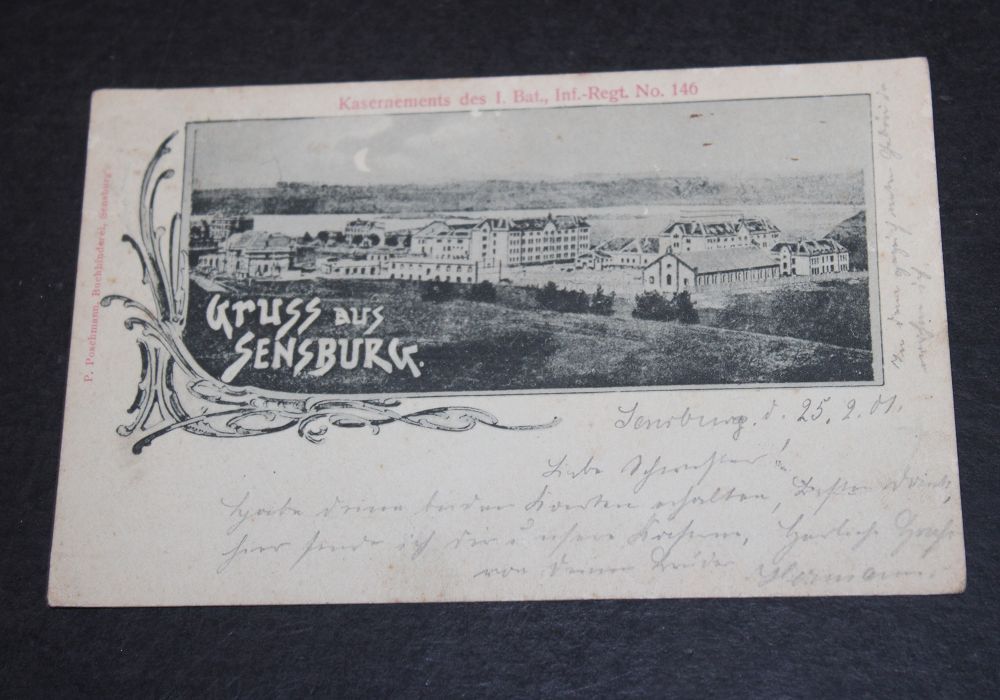 Kasernements des I. Bat., Inf.-Regt. No. 146
P. Poschmann, Buchbinderei, Sensburg
Gruss aus
Sensburg.
Sensburg. d. 25. 2. 01.
Liebe Schwester!
Habe deine beiden Karten erhalten, Besten Dank,
hier sende ich dir unsere Kaserne, Herzliche Grüße
von deinem Bruder Hermann.